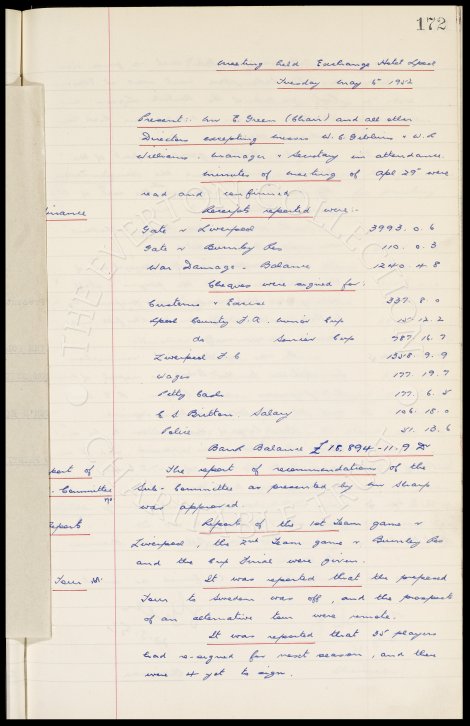 172
Meeting held Exchange Hotel Lpool
Tuesday May 5th 1952
Present:- Mr E. Green (Chair) and all other
Directors excepting Messrs W. C. Gibbins & W. R.
Williams. Manager & Secretary in attendance.
Minutes of meeting of Apl 29th were
read and confirmed
Finance
Receipts reported were:-
Gate v Liverpool 3993. 0. 6
Gate v Burnley Res 110. 0. 3
War Damage - Balance 1240. 4. 8
Cheques were signed for:
Customs & Excise 337. 8. 0
Lpool County F.A. Junior Cup 15. 12. 2
do Senior Cup 787. 16. 7
Liverpool F C 1358. 9. 9
Wages 177. 19. 7
Petty Cash 177. 6. 5
C S Britton. Salary 106. 18. 0
Police 51. 13. 6
Bank Balance £18,894-11.9 Dr
port of
Committee
The report of recommendations of the
Sub-Committee as presented by Mr Sharp
was approved.
eport
Report of the 1st Team game v
Liverpool, the 2nd Team game v Burnley Res
and the Cup Final were given.
Tour
It was reported that the proposed
Tour to Sweden was off, and the prospects
of an alternative tour were remote.
It was reported that 35 players
had re-signed for next season, and there
were 4 yet to sign.
THE EVERTON COLLECTION
CHARITABLE TRUST